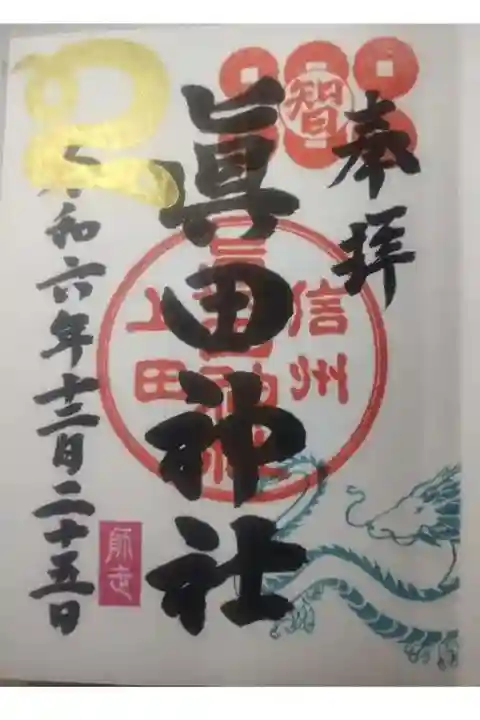 奉拝
智
眞田神社
信州
眞田神社
上田
令和六年十二月二十五日
師走